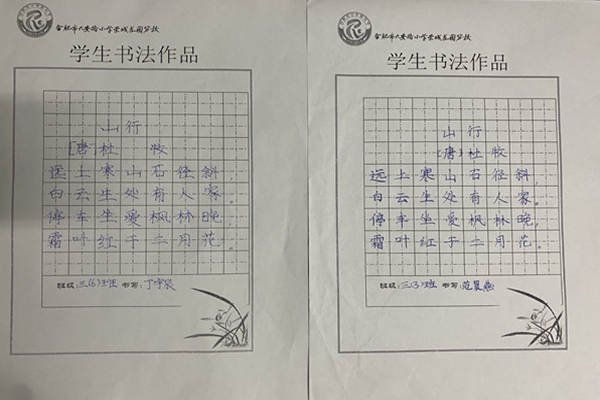 合肥市六安路小学荣城花园分校
学生书法作品
山行
[唐]杜 牧
远上寒山石径斜,
白云生处有人家。
停车坐爱枫林晚,
霜叶红于二月花。
班级:三(6)班 书写:丁宇
合肥市六安路小学荣城花园分校
学生书法作品
山行
[唐]杜牧
远上寒山石径斜,
白云生处有人家。
停车坐爱枫林晚,
霜叶红于二月花。
班级:三(3)班 书写:范晨